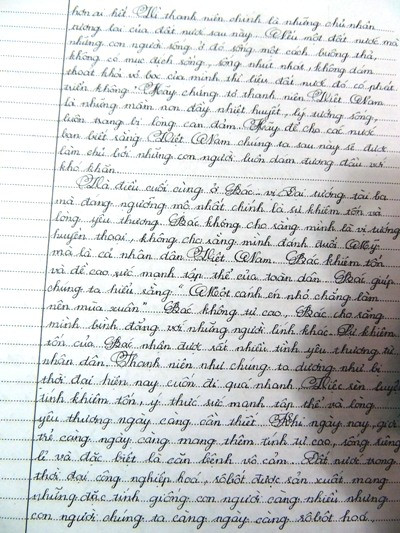 hơn ai hết. Vì thanh niên chính là những chủ nhân
tương lai của đất nước sau này. Nếu một đất nước mà
những con người sống ở đó sống một cách buông thả,
không có mục đích sống, sống nhút nhát, không dám
thoát khỏi vỏ bọc của mình thì liệu đất nước đó có phát
triển không? Hãy chứng tỏ thanh niên Việt Nam
là những mầm non đầy nhiệt huyết, lý tưởng sống,
luôn trang bị lòng can đảm. Hãy để cho các nước
bạn biết rằng Việt Nam chúng ta sau này sẽ được
làm chủ bởi những con người luôn dám đương đầu với
khó khăn.
Và điều cuối cùng ở Bác - vị Đại tướng tài ba
mà đáng ngưỡng mộ nhất chính là sự khiêm tốn và
lòng yêu thương. Bác không cho rằng mình là vị tướng
huyền thoại, không cho rằng mình đánh đuổi Mỹ
mà là cả nhân dân Việt Nam. Bác khiêm tốn
và đề cao sức mạnh tập thể của toàn dân. Bác giúp
chúng ta hiểu rằng: "Một cánh én nhỏ chẳng làm
nên mùa xuân". Bác không tự cao, Bác cho rằng
mình bình đẳng với những người lính khác. Sự khiêm
tốn của Bác nhận được rất nhiều tình yêu thương từ
nhân dân. Thanh niên như chúng ta dường như bị
thời đại hiện nay cuốn đi quá nhanh. Việc rèn luyện
tính khiêm tốn, ý thức sức mạnh tập thể và lòng
yêu thương ngày càng cần thiết. Khi ngày nay, giới
trẻ càng ngày càng mang thêm tính tự cao, sống riêng
lẻ và đặc biệt là căn bệnh vô cảm. Đất nước trong
thời đại công nghiệp hoá, rôbôt được sản xuất mang
những đặc tính giống con người càng nhiều nhưng
con người chúng ta càng ngày càng rôbôt hoá,